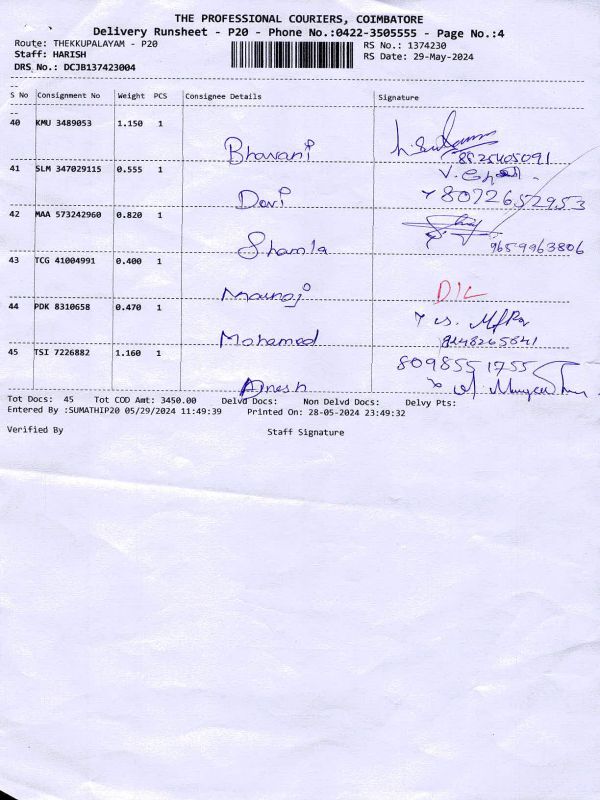 THE PROFESSIONAL COURIERS, COIMBATORE
Delivery Runsheet - P20 - Phone No.:0422-3505555 - Page No.:4
Route: THEKKUPALAYAM - P20 RS No.: 1374230
Staff: HARISH RS Date: 29-May-2024
DRS No.: DCJB137423004
S No Consignment No Weight PCS Consignee Details Signature
40 KMU 3489053 1.150 1
Bhavani 8925405091
41 SLM 347029115 0.555 1
Devi 8072652953
42 MAA 573242960 0.820 1
Shamla 9659963806
43 TCG 41004991 0.400 1
Manoj D/L
44 PDK 8310658 0.470 1
Mohamed 8148265841
45 TSI 7226882 1.160 1 8098551755
Ajnesh
Tot Docs: 45 Tot COD Amt: 3450.00 Delvd Docs: Non Delvd Docs: Delvy Pts:
Entered By :SUMATHIP20 05/29/2024 11:49:39 Printed On: 28-05-2024 23:49:32
Verified By Staff Signature